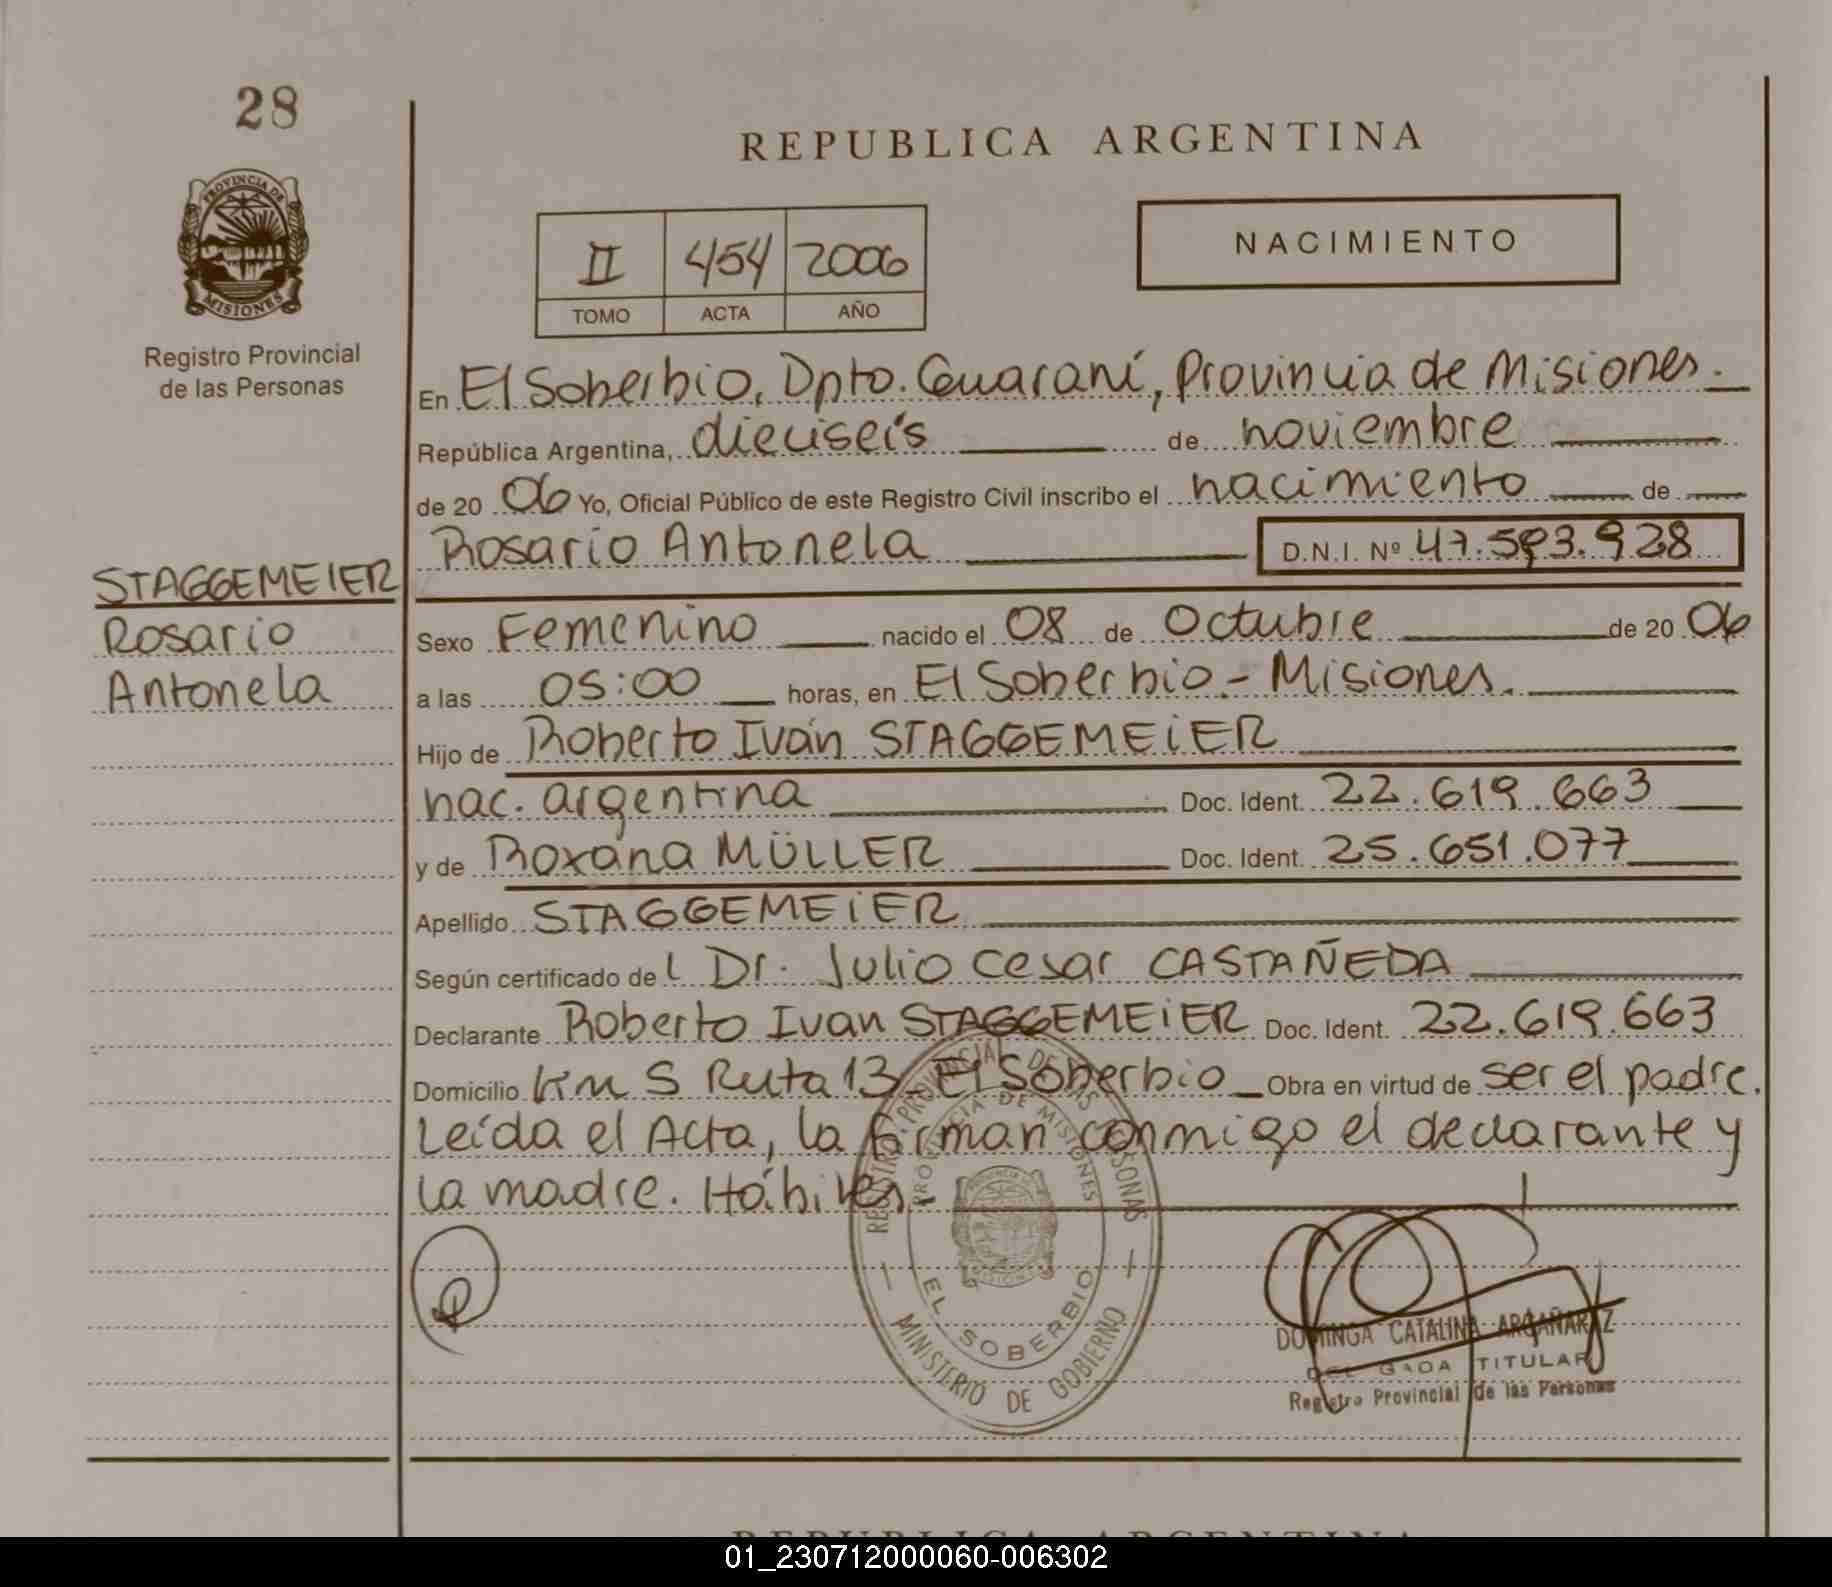 28
REPUBLICA ARGENTINA
PROVINCIA DE
MISIONES
Registro Provincial
de las Personas
II 454 2006
TOMO ACTA AÑO
NACIMIENTO
En El Soberbio, Dpto. Guaraní, Provincia de Misiones.
República Argentina, dieciseís de noviembre
de 20 06 Yo, Oficial Público de este Registro Civil inscribo el nacimiento de
Rosario Antonela D.N.I. Nº 47.593.928
STAGGEMEIER
Rosario
Antonela
Sexo Femenino nacido el 08 de Octubre de 20 06
a las 05:00 horas, en El Soberbio - Misiones.
Hijo de Roberto Iván STAGGEMEiER
nac. argentina Doc. Ident. 22.619.663
y de Roxana MÜLLER Doc. Ident. 25.651.077
Apellido STAGGEMEiER
Según certificado de l Dr. Julio Cesar CASTAÑEDA
Declarante Roberto Ivan STAGGEMEiER Doc. Ident. 22.619.663
Domicilio Km 5 Ruta 13 El Soberbio Obra en virtud de ser el padre.
Leída el Acta, la firman conmigo el declarante y
la madre. Hábiles.-
REGISTRO PROVINCIAL DE LAS PERSONAS
PROVINCIA DE MISIONES
EL SOBERBIO
MINISTERIO DE GOBIERNO
DOMINGA CATALINA ARGAÑARAZ
DELEGADA TITULAR
Registro Provincial de las Personas
REPUBLICA ARGENTINA
01_230712000060-006302